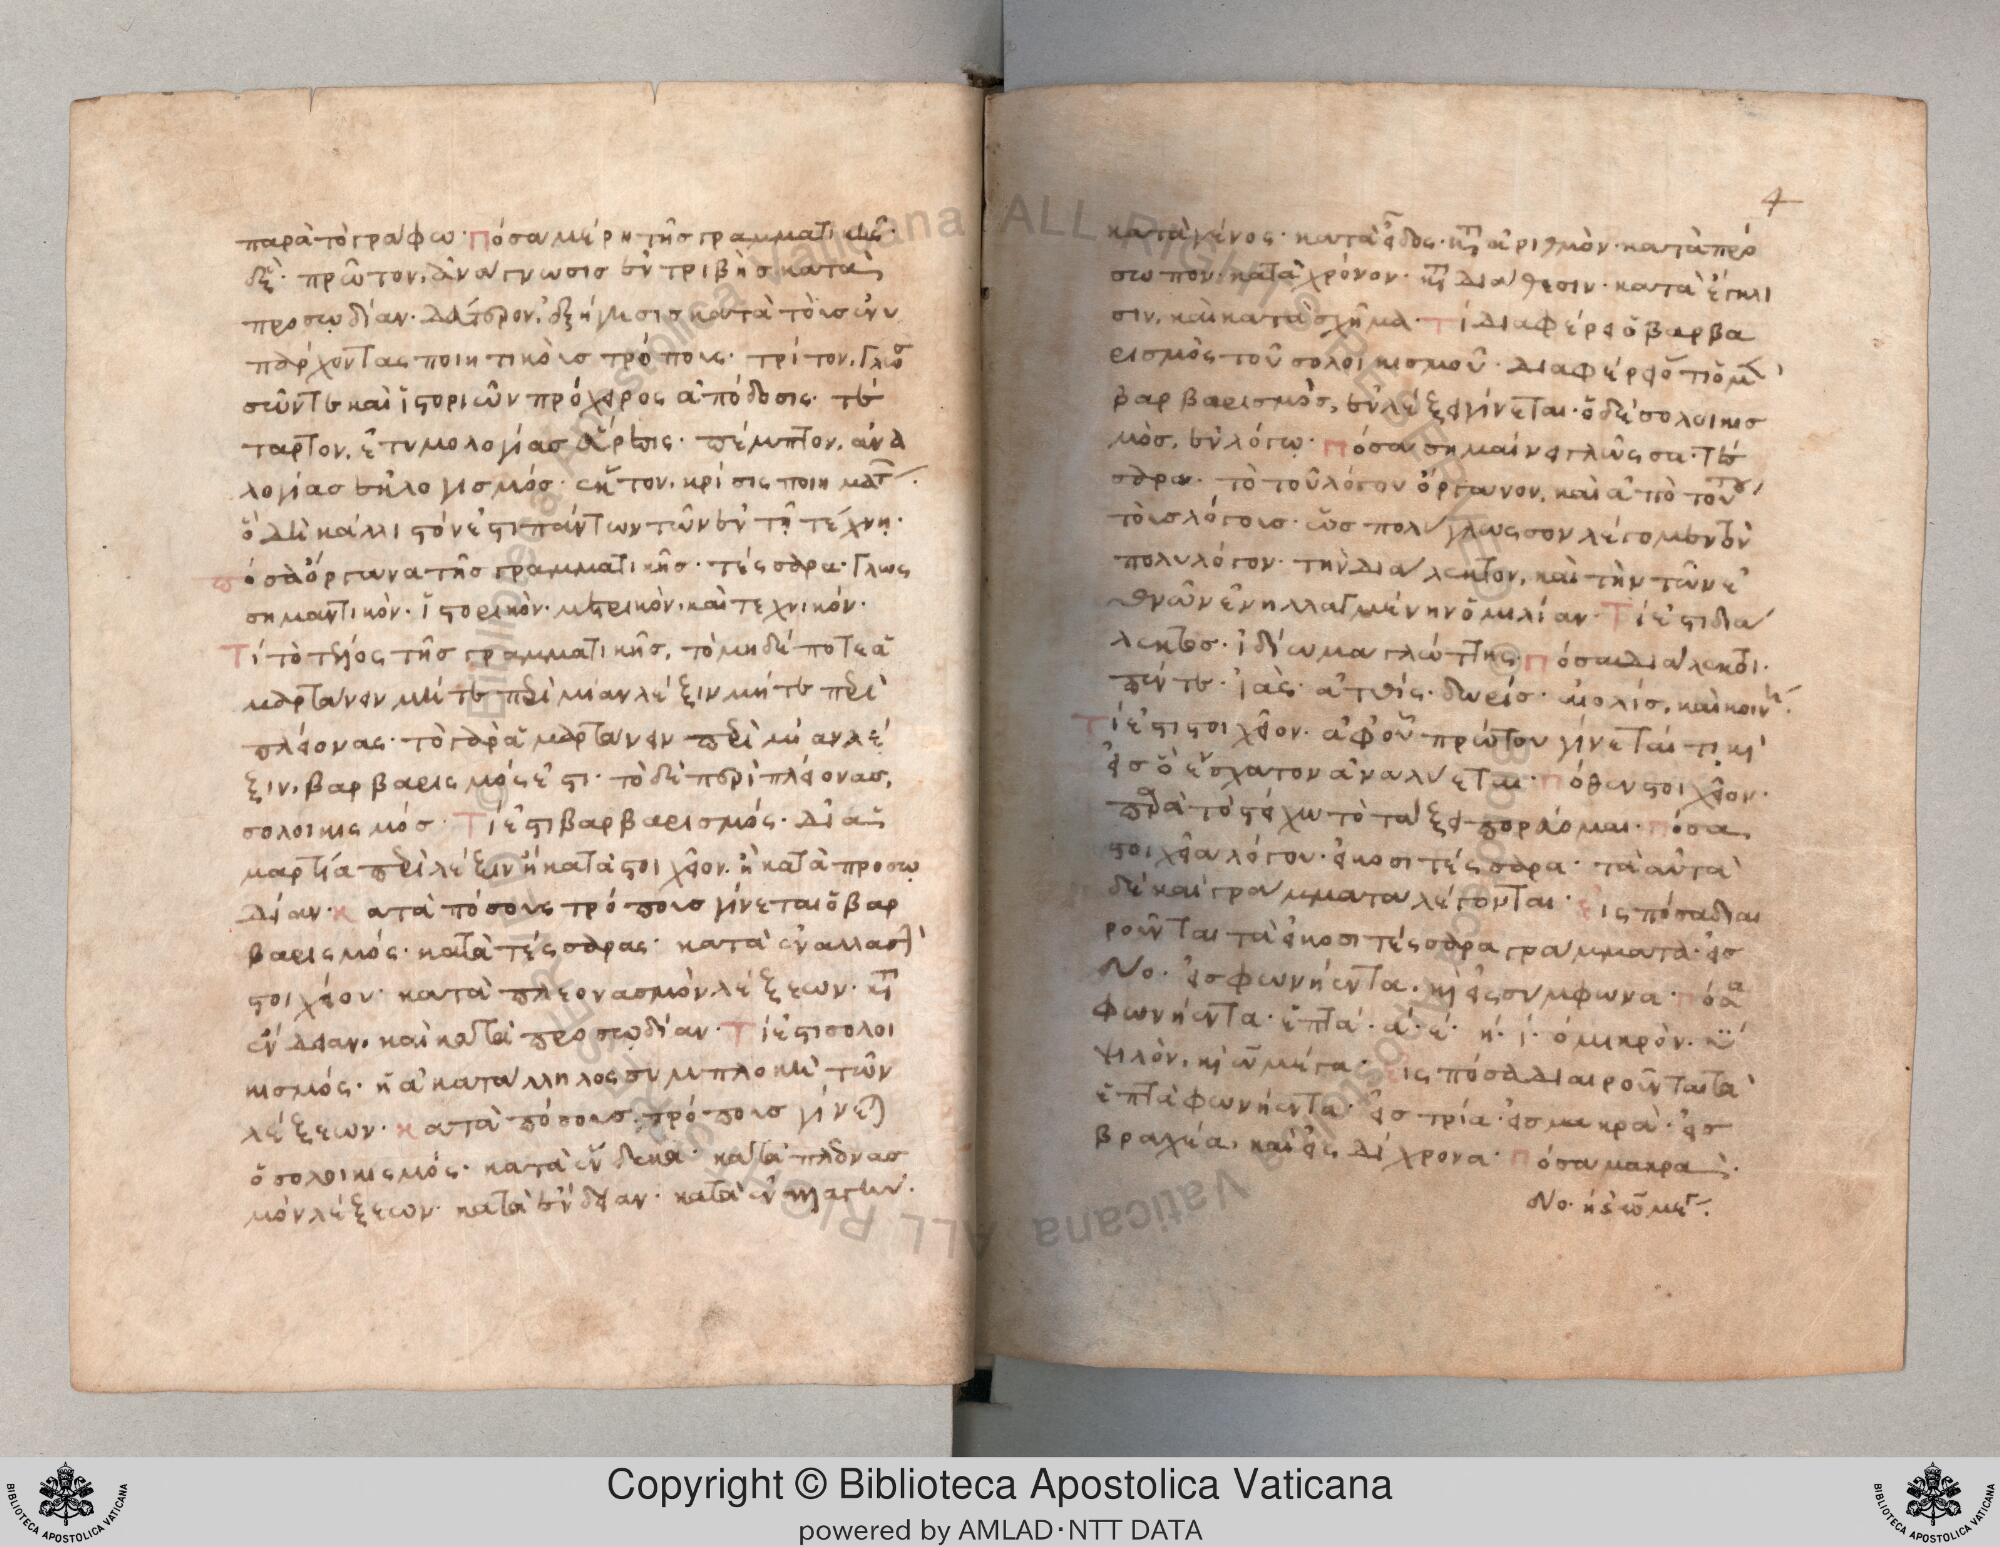 παρὰ τὸ γράφω· Πόσα μέρη τῆς γραμματικῆς·
ἕξ· πρῶτον, ἀνάγνωσις ἐντριβὴς κατὰ
προσῳδίαν· δεύτερον, ἐξήγησις κατὰ τοὺς ἐνυ
πάρχοντας ποιητικοὺς τρόπους· τρίτον, γλωσ
σῶν τε καὶ ἱστοριῶν πρόχειρος ἀπόδοσις· τέ
ταρτον, ἐτυμολογίας εὕρεσις· πέμπτον, ἀνα
λογίας ἐκλογισμός· ἕκτον, κρίσις ποιημάτ
ὃ δὴ κάλλιστόν ἐστι πάντων τῶν ἐν τῇ τέχνῃ·
πόσα ὄργανα τῆς γραμματικῆς· τέσσαρα· γλωσ
σηματικὸν· ἱστορικὸν· μετρικὸν· καὶ τεχνικόν·
Τί τὸ τέλος τῆς γραμματικῆς, τὸ μηδέποτε ἁ
μαρτάνειν μήτε περὶ μίαν λέξιν μήτε περὶ
πλείονας· τὸ γὰρ ἁμαρτάνειν περὶ μίαν λέ
ξιν, βαρβαρισμός ἐστι· τὸ δὲ περὶ πλείονας,
σολοικισμός· Τί ἐστι βαρβαρισμός· ἁ
μαρτία περὶ λέξιν ἢ κατὰ στοιχεῖον. ἢ κατὰ προσῳ
δίαν· κατὰ πόσους τρόπους γίνεται ὁ βαρ
βαρισμός· κατὰ τέσσαρας· κατὰ ἐναλλαγ
στοιχείου· κατὰ πλεονασμὸν λέξεων·
ἔνδειαν· καὶ κατὰ προσῳδίαν· Τί ἐστι σολοι
κισμός· ἡ ἀκατάλληλος συμπλοκὴ τῶν
λέξεων· κατὰ πόσους τρόπους γίνεται
ὁ σολοικισμός· κατὰ ἕνδεκα· κατὰ πλεονασ
μὸν λέξεων· κατὰ ἔνδειαν· κατὰ ἐναλλαγὴν·
4
κατὰ γένος· κατὰ εἶδος· κατὰ ἀριθμὸν· κατὰ πρό
σωπον· κατὰ χρόνον· κατὰ διάθεσιν· κατὰ ἔγκλι
σιν, καὶ κατὰ σχῆμα· Τί διαφέρει ὁ βαρβα
ρισμὸς τοῦ σολοικισμοῦ· διαφέρει ὅτι ὁ μὲν
βαρβαρισμὸς, ἐν λέξει γίνεται· ὁ δὲ σολοικισ
μὸς, ἐν λόγῳ· Πόσα σημαίνει γλῶσσα· τέσ
σαρα· τὸ τοῦ λόγου ὄργανον, καὶ ἀπὸ τοῦ
τοῖς λόγοις· ὡς πολύγλωσσον λέγομεν τὸν
πολυλόγον· τὴν διάλεκτον, καὶ τὴν τῶν ἐ
θνῶν ἐνηλλαγμένην ὁμιλίαν· Τί ἐστι διά
λεκτος· ἰδίωμα γλώττης· Πόσαι διάλεκτοι·
πέντε· ἰάς· ἀτθίς· δωρίς· αἰολίς, καὶ κοινή·
Τί ἐστι στοιχεῖον· ἀφ' οὗ πρώτου γίνεταί τι καὶ
εἰς ὃ ἔσχατον ἀναλύεται· Πόθεν στοιχεῖον·
παρὰ τὸ στείχω τὸ τάξει πορεύομαι· Πόσα
στοιχεῖα λόγου· εἰκοσιτέσσαρα· τὰ αὐτὰ
δὲ καὶ γράμματα λέγονται· Εἰς πόσα διαι
ροῦνται τὰ εἰκοσιτέσσαρα γράμματα· εἰς
δύο· εἰς φωνήεντα, καὶ εἰς σύμφωνα· Πόσα
φωνήεντα· ἑπτά· α· ε· η· ι· ο μικρὸν· υ
ψιλὸν, καὶ ω μέγα· Εἰς πόσα διαιροῦνται τὰ
ἑπτὰ φωνήεντα· εἰς τρία· εἰς μακρὰ· εἰς
βραχέα, καὶ εἰς δίχρονα· Πόσα μακρά·
δύο· η καὶ ω μέγ·
Copyright © Biblioteca Apostolica Vaticana
powered by AMLAD·NTT DATA
BIBLIOTECA APOSTOLICA VATICANA
BIBLIOTECA APOSTOLICA VATICANA